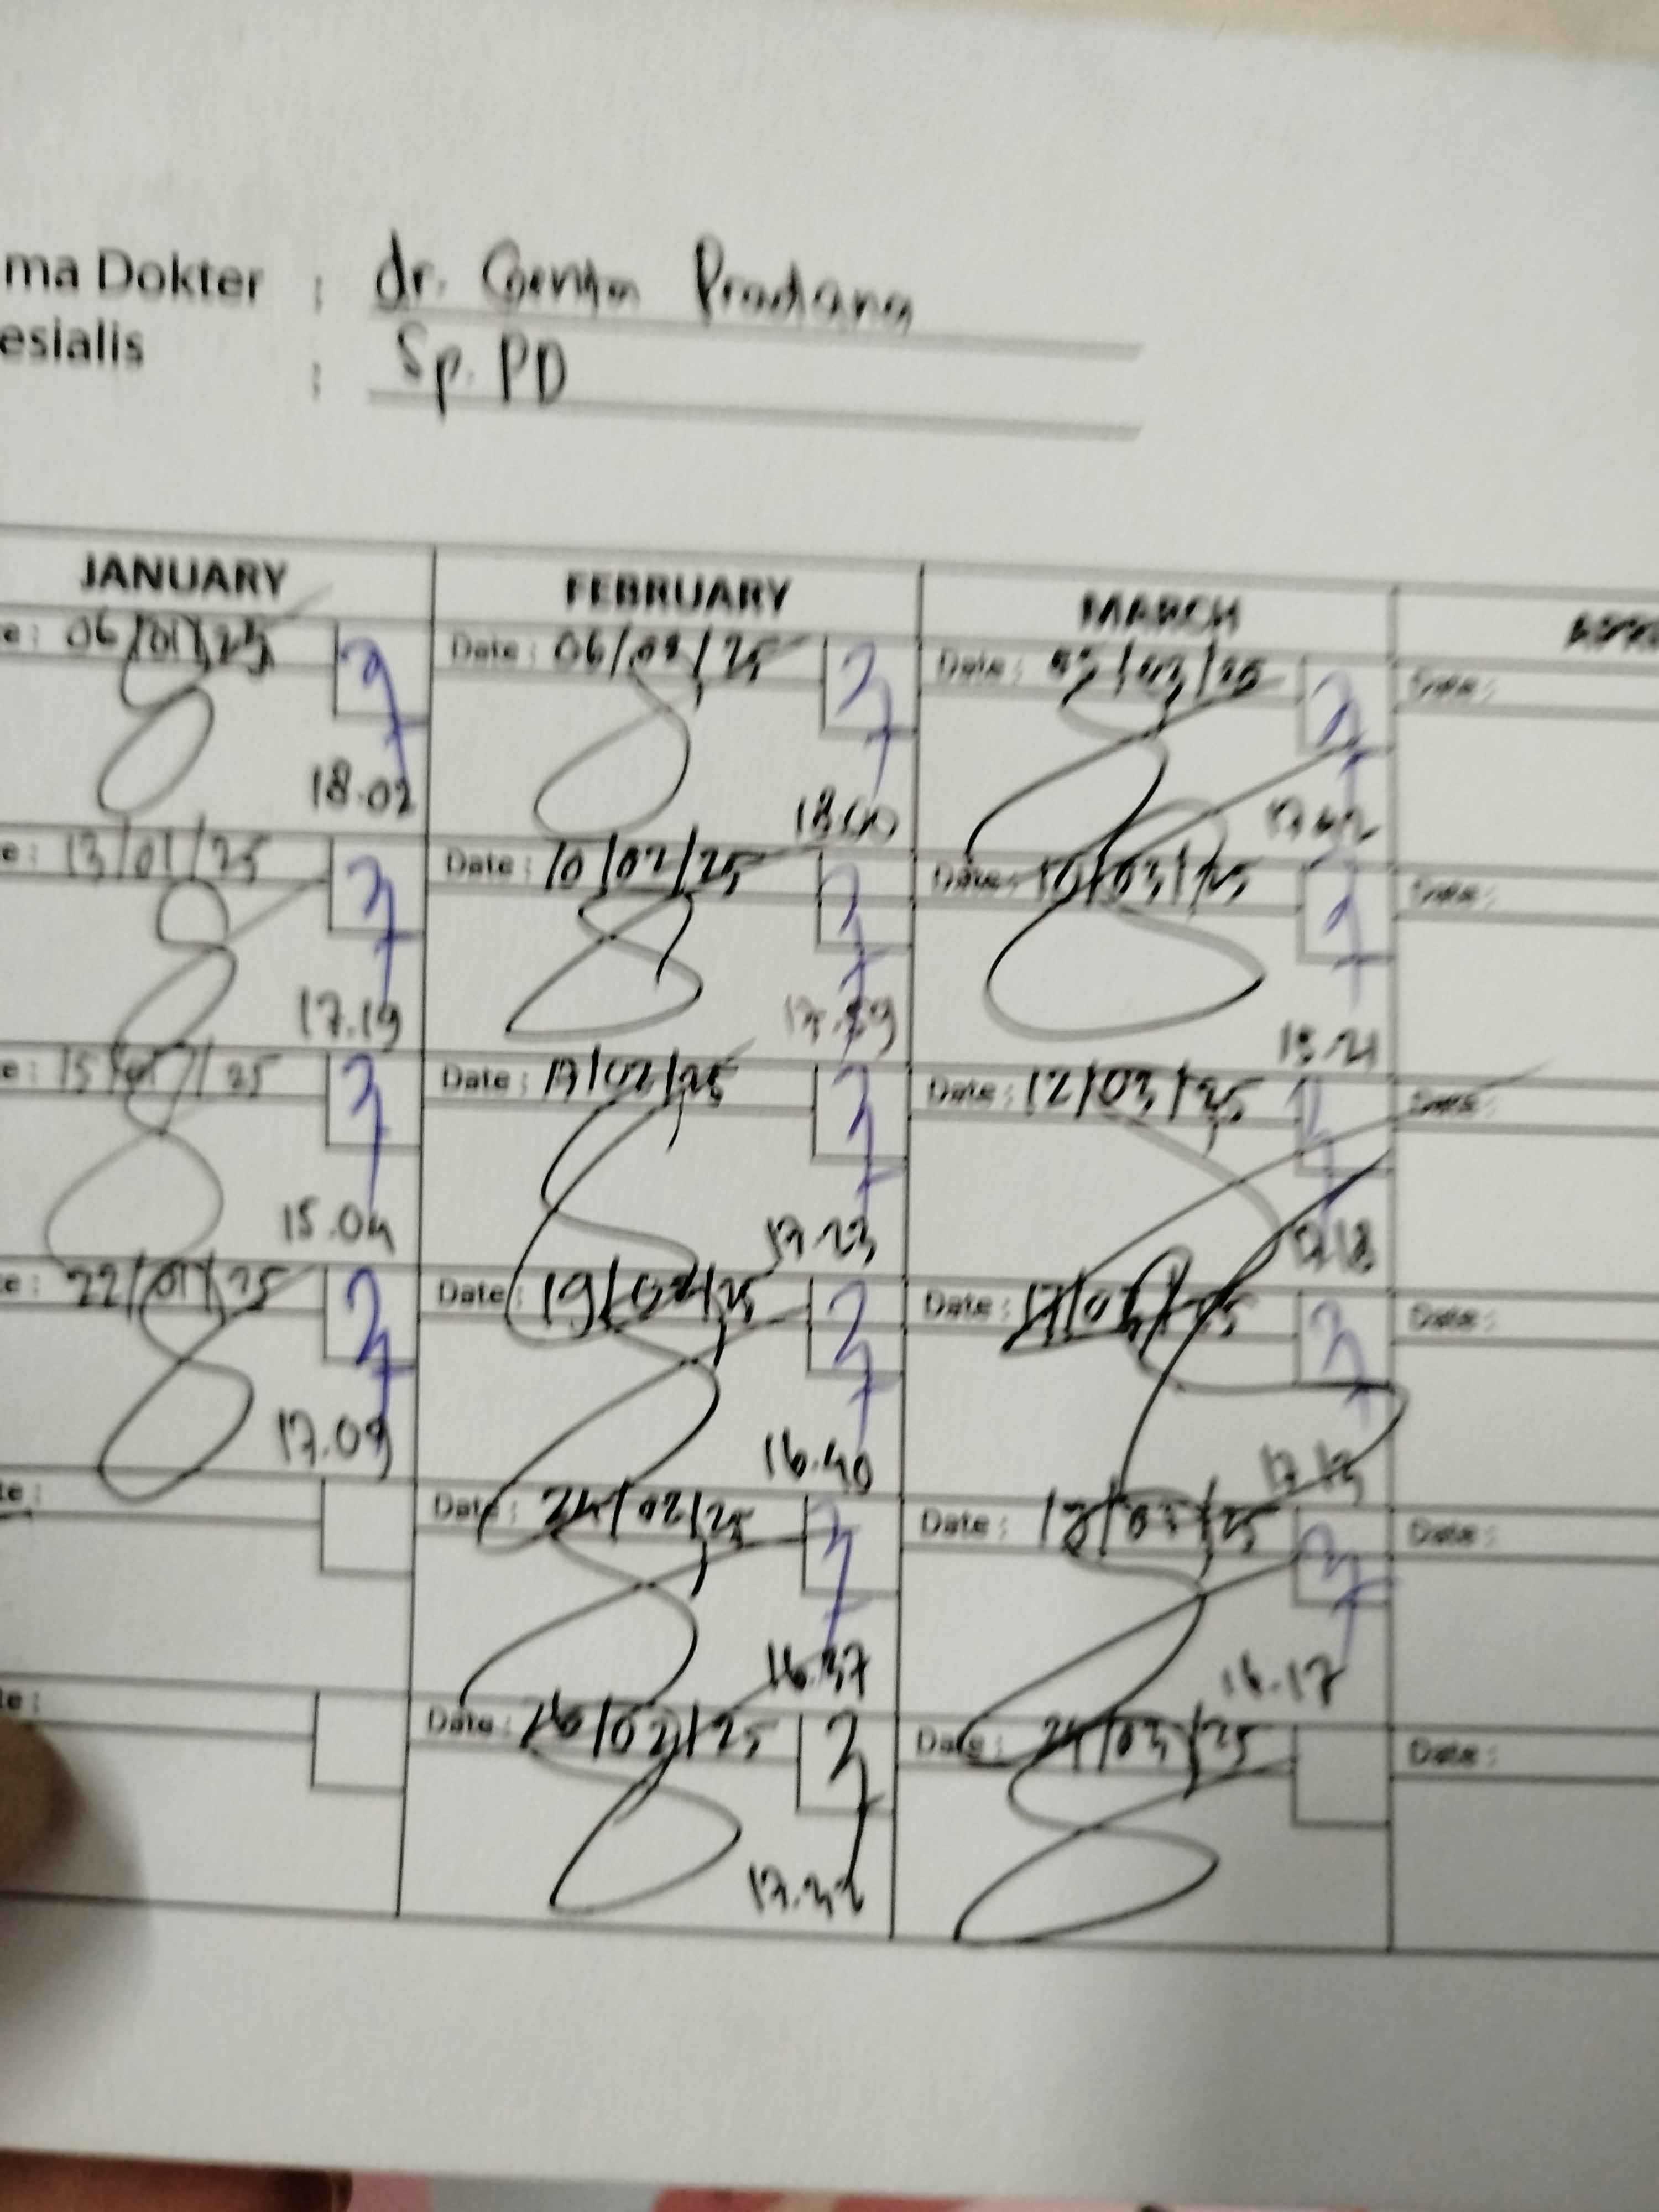 ma Dokter : dr. Pradana
esialis : Sp. PD
JANUARY FEBRUARY MARCH
e: 06/01/25 Date: 06/02/25 Date: /03/25 Date:
18.02 18.00
e: 13/01/25 Date: 10/02/25 Date: 10/03/25 Date:
17.19
e: 15/01/25 Date: 17/02/25 Date: 12/03/25 Date:
15.04 17.23 17.18
te: 22/01/25 Date: 19/02/25 Date: 17/03/25 Date:
17.09 16.40 17.13
te: Date: 24/02/25 Date: /03/25 Date:
16.37 16.17
te: Date: 26/02/25 Date: 24/03/25 Date: